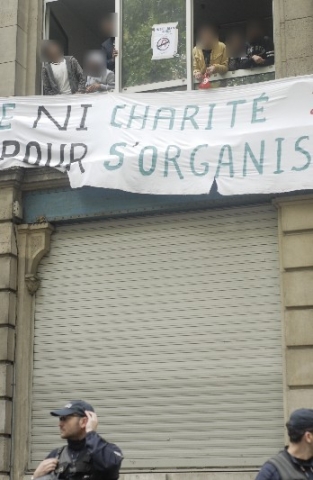 E NI CHARITÉ
POUR S'ORGANIS